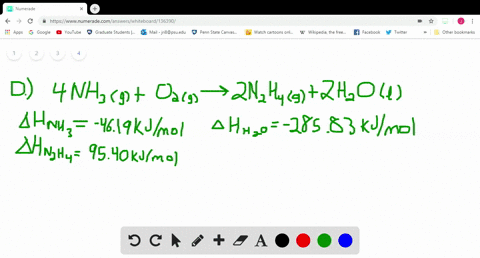 Numerade
https://www.numerade.com/answers/whiteboard/136290/
Apps
YouTube
Graduate Students J
Penn State Canvas
Watch cartoons online
Wikipedia, the free
Other bookmarks
1 2 3 4
D.) 4NH3(g) + O2(g) → 2N2H4(g) + 2H2O(l)
ΔH NH3 = -46.19 kJ/mol ΔH H2O = -285.83 kJ/mol
ΔH N2H4 = 95.40 kJ/mol
A